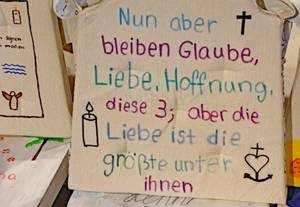 Nun aber
bleiben Glaube,
Liebe, Hoffnung,
diese 3; aber die
Liebe ist die
größte unter
ihnen